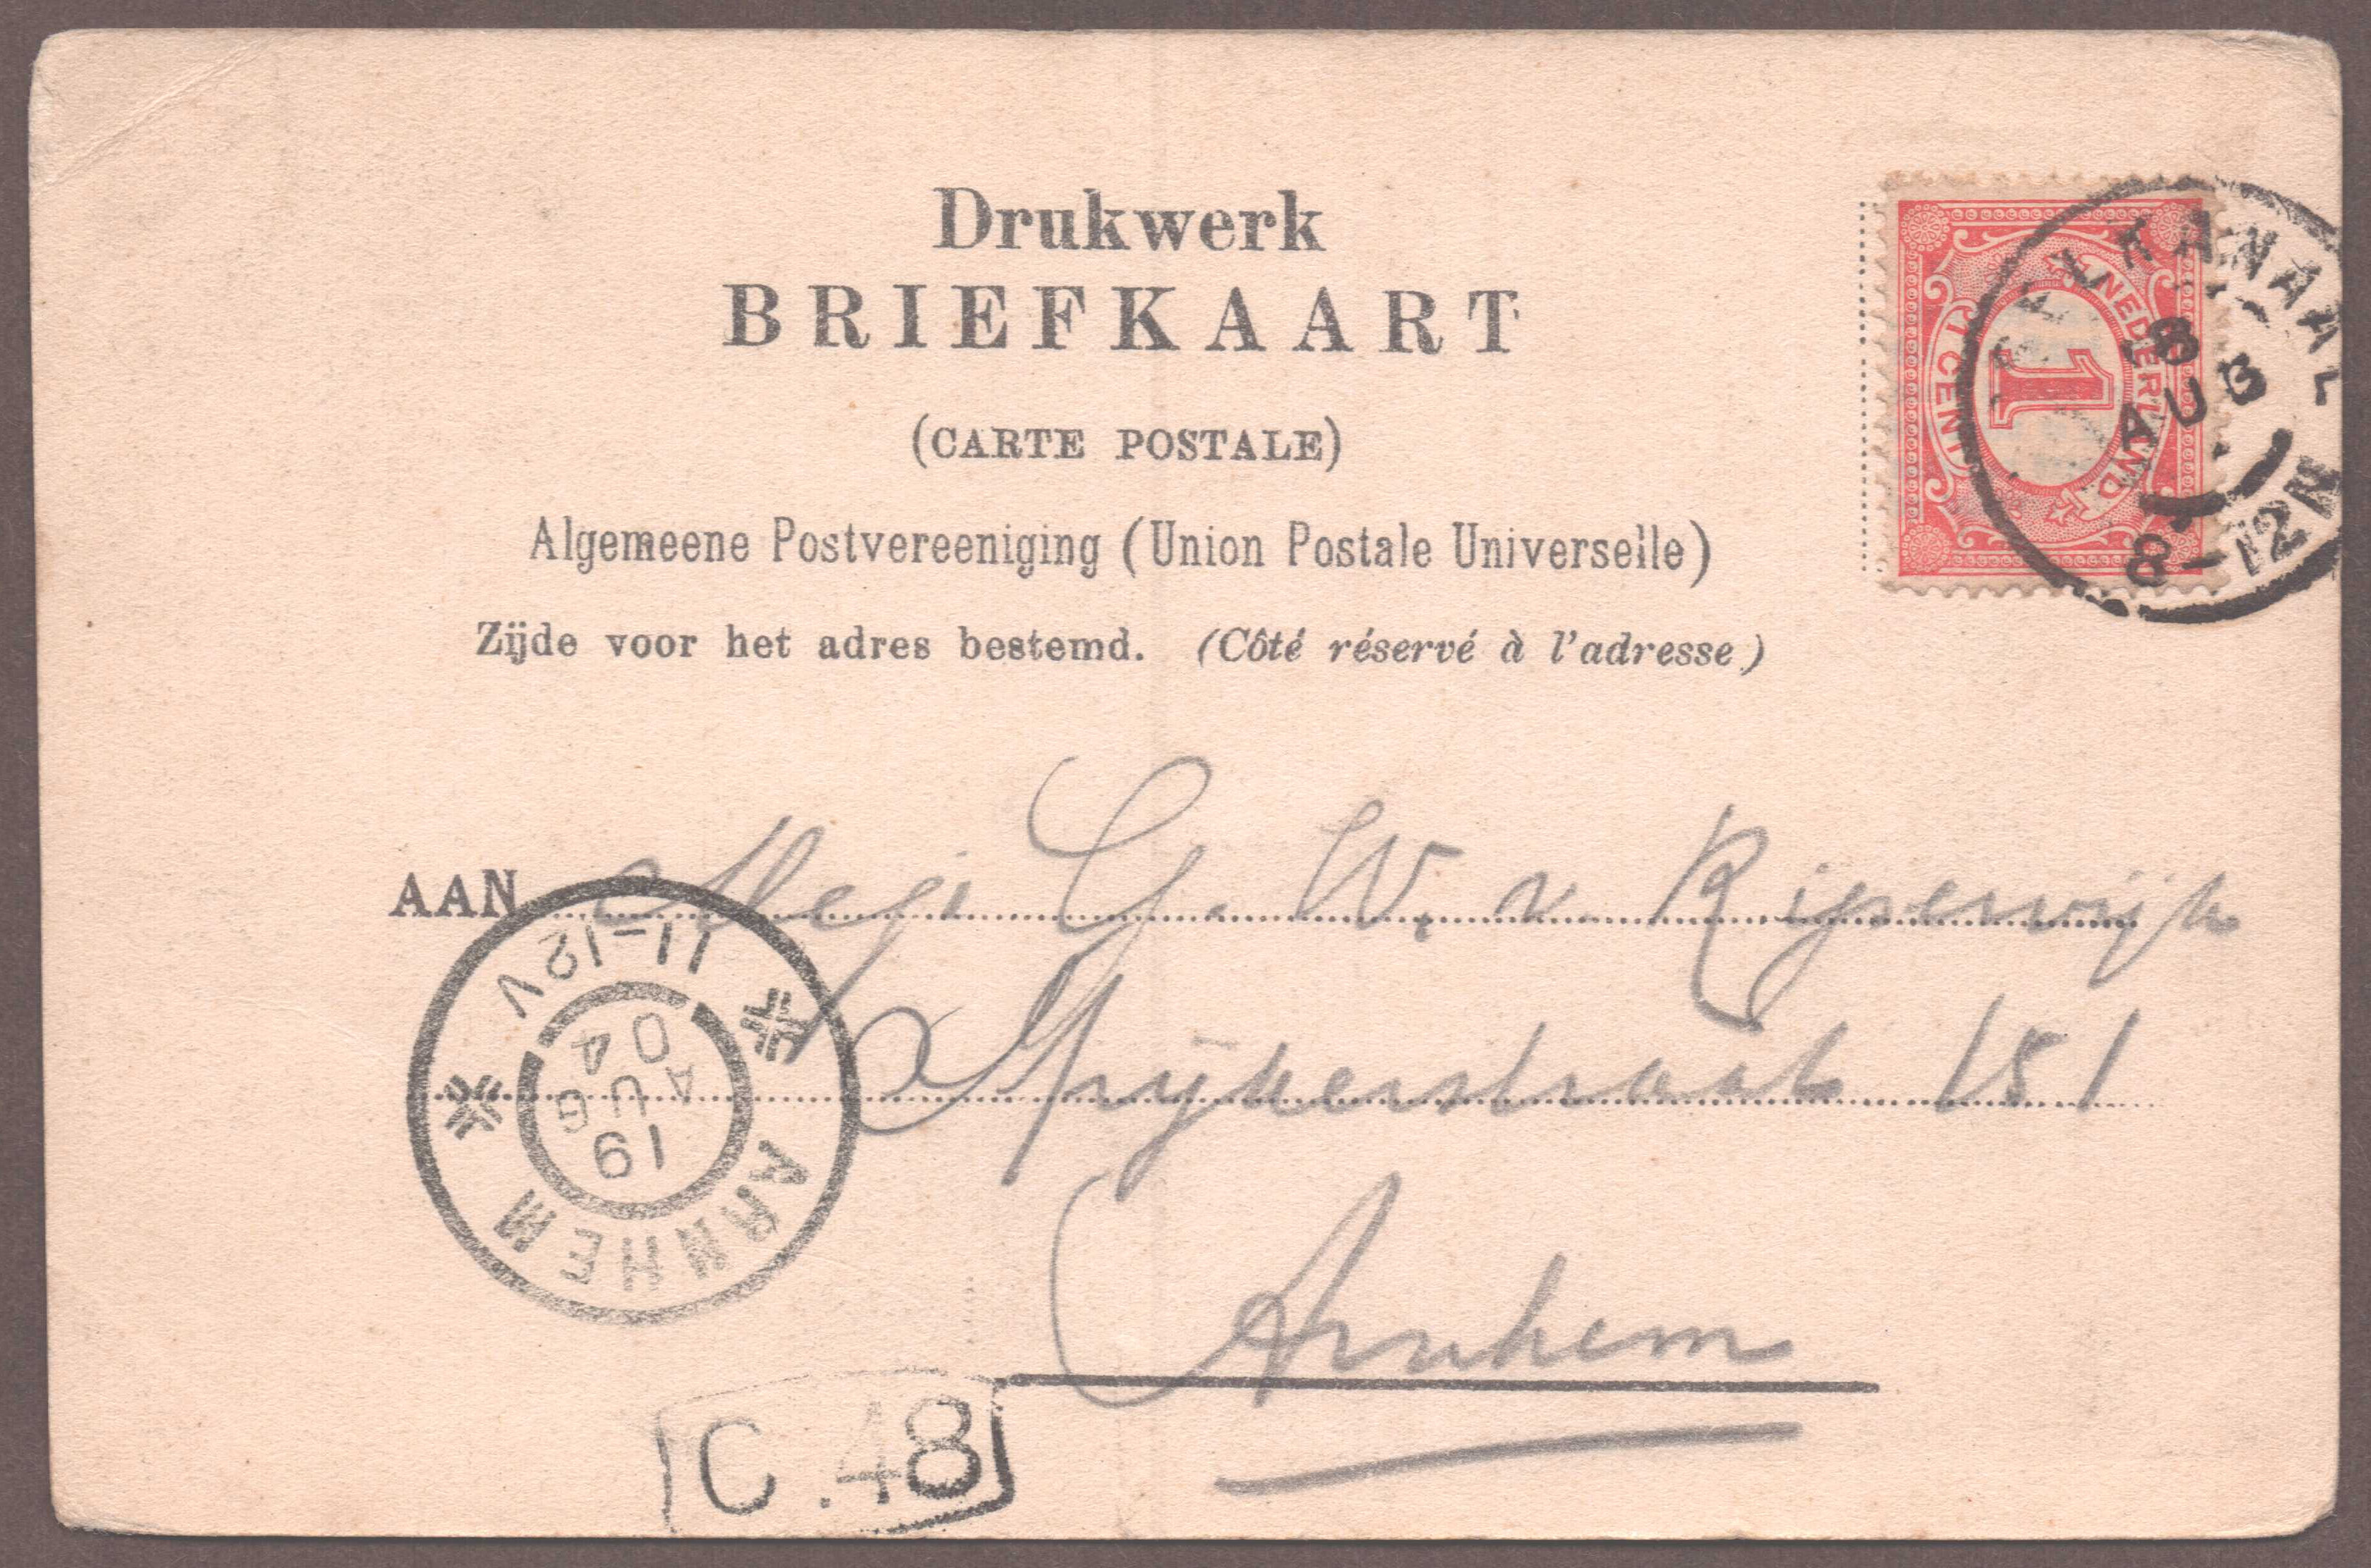 Drukwerk
BRIEFKAART
(CARTE POSTALE)
Algemeene Postvereeniging (Union Postale Universelle)
Zijde voor het adres bestemd. (Côté réservé à l'adresse)
NEDERLAND
1
1 CENT
KANAAL
8 AUG
8-12N
AAN Mej. G. W. v. Rijserwijk
Spijkerstraat 151
Arnhem
11-12V
19 AUG 04
ARNHEM
C.48